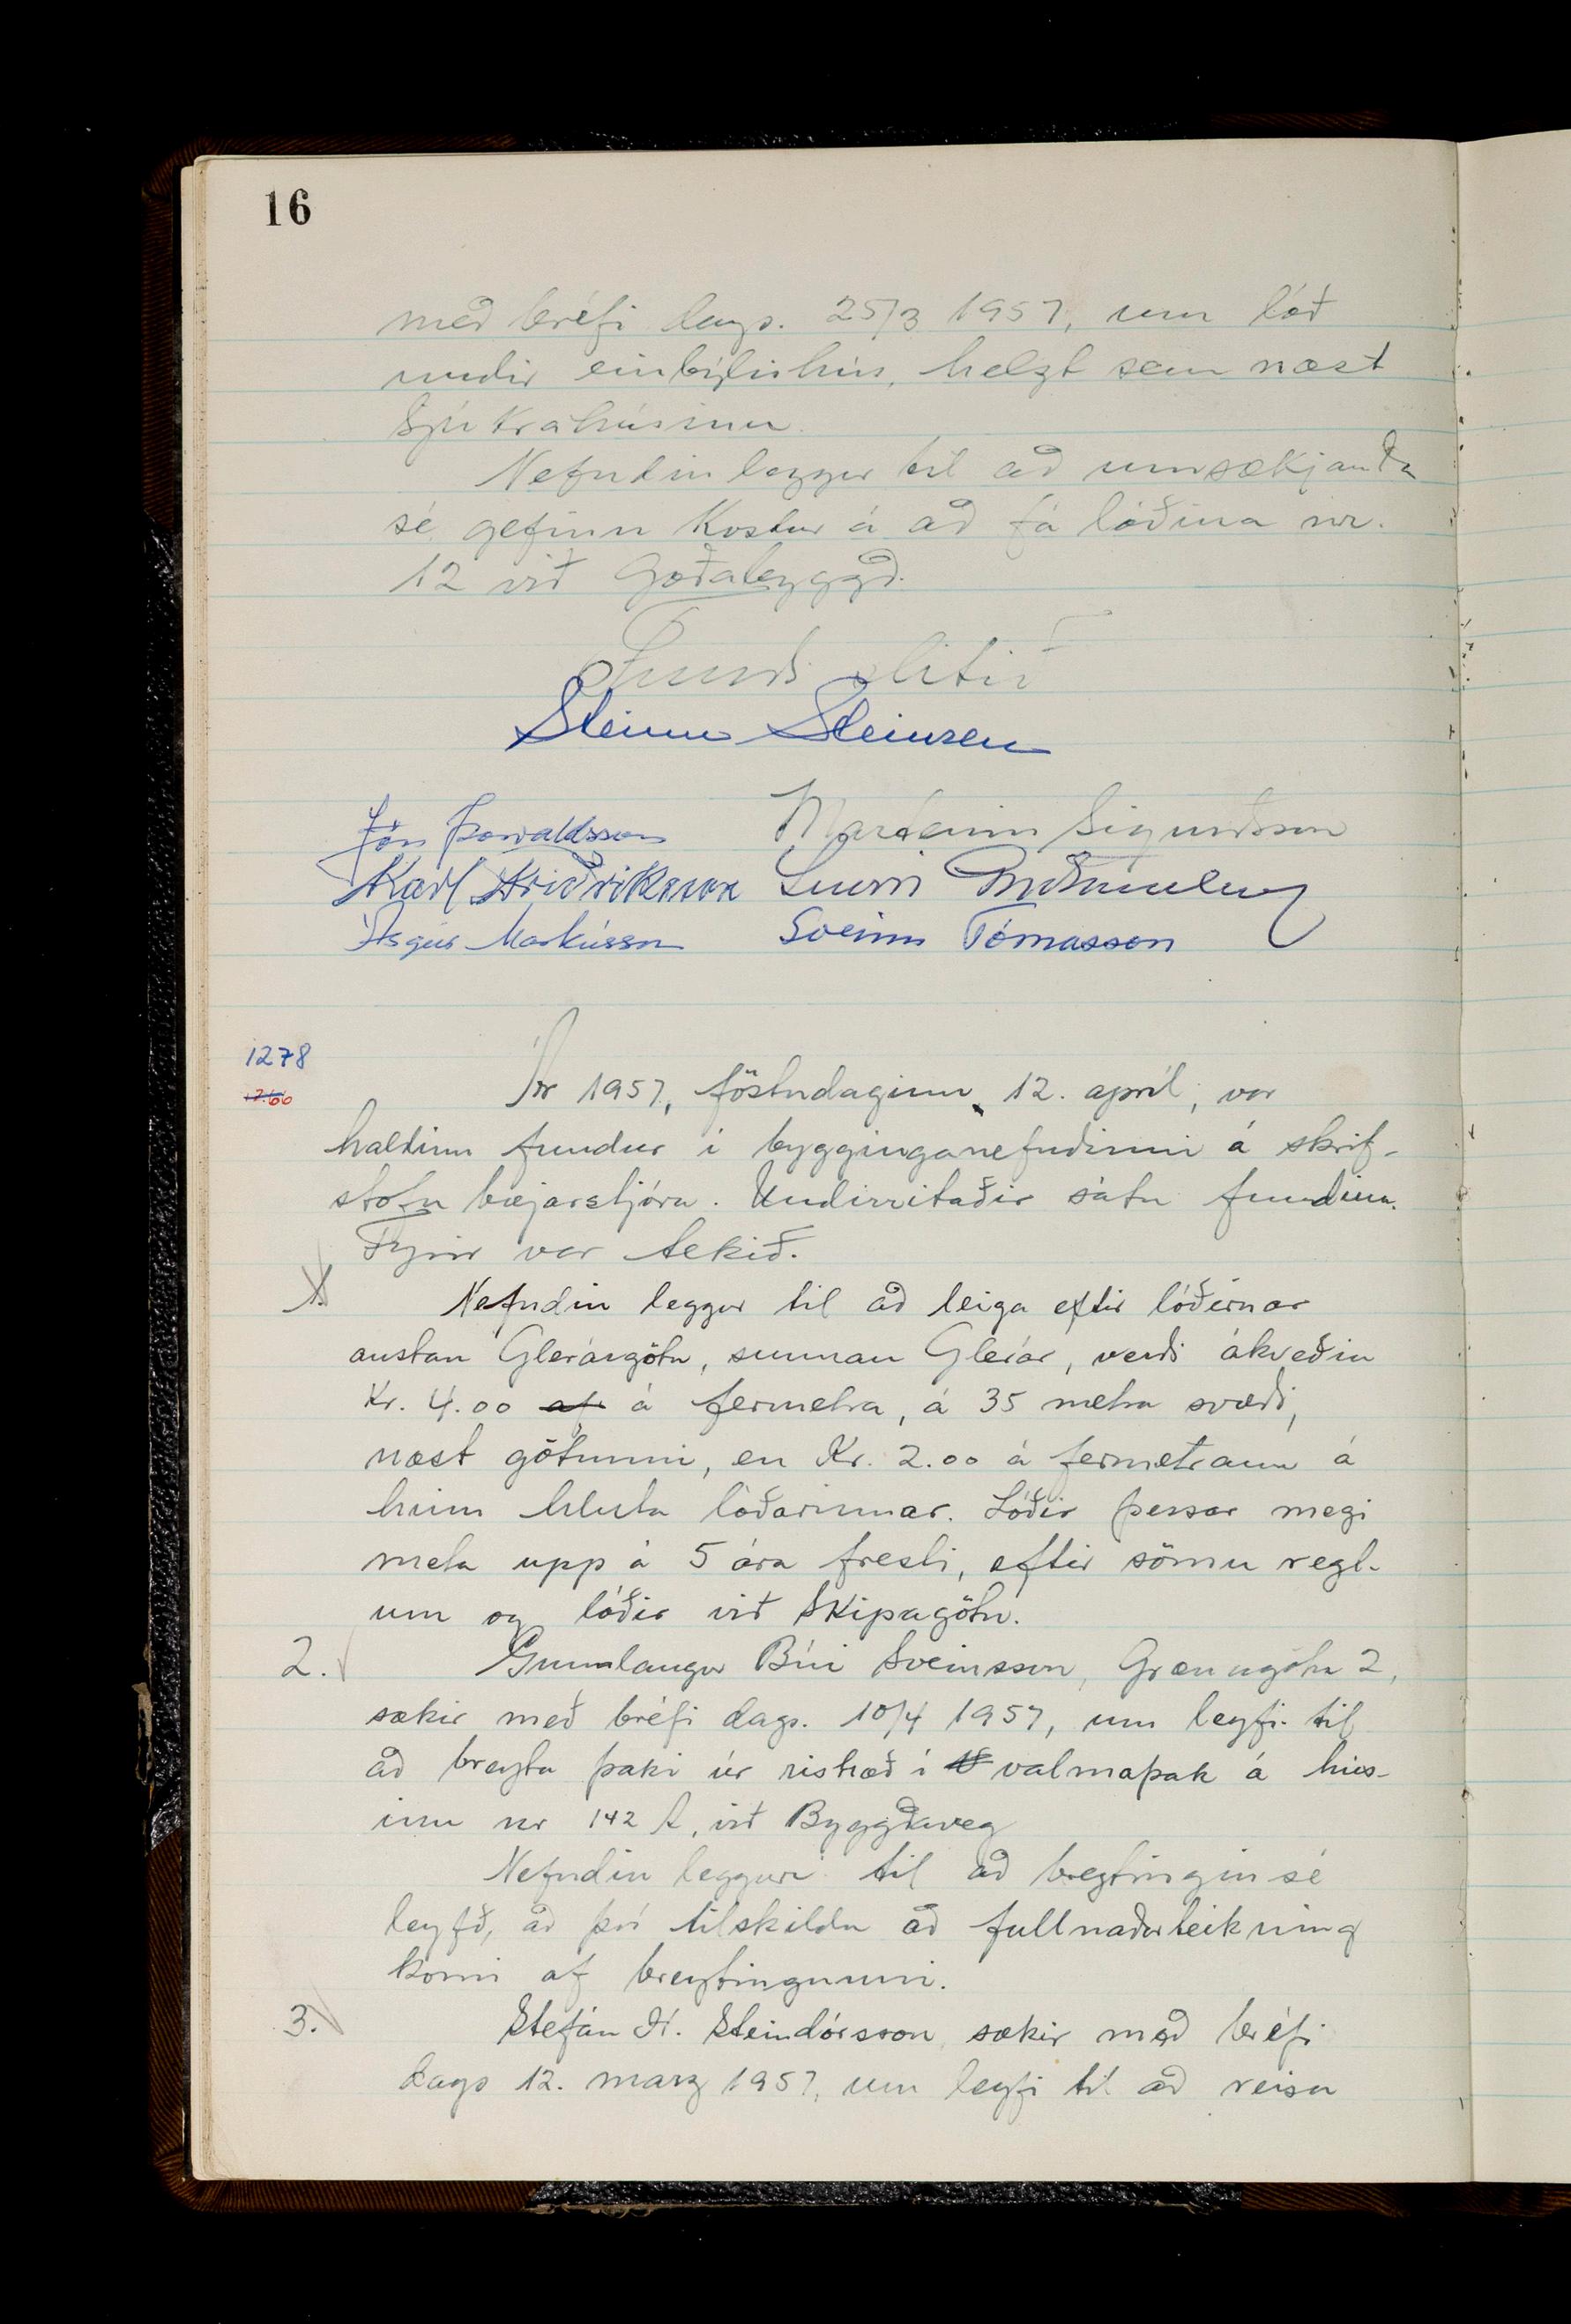 16
með bréfi dags. 25/3 1957, um lóð
undir einbýlishús, helzt sem næst
Sjúkrahúsinu.
Nefndin leggur til að umsækjanda
sé gefinn kostur á að fá lóðina nr.
12 við Goðabyggð.
Fundi slitið
Steinn Steinsen
Jón Þorvaldsson Marteinn Sigurðsson
Karl Friðriksson Snorri Guðmundsson
Ásgeir Markússon Sveinn Tómasson
1278
1266
Ár 1957, föstudaginn, 12. apríl, var
haldinn fundur í bygginganefndinni á skrif-
stofu bæjarstjóra. Undirritaðir sátu fundinn.
Fyrir var tekið.
1.
Nefndin leggur til að leiga eftir lóðirnar
austan Glerárgötu, sunnan Glerár, verði ákveðin
Kr. 4.00 af á fermetra, á 35 metra svæði,
næst götunni, en Kr. 2.00 á fermetrann á
hinn hluta lóðarinnar. Lóðir þessar megi
meta upp á 5 ára fresti, eftir sömu regl-
um og lóðir við Skipagötu.
2. Gunnlaugur Búi Sveinsson, Grænugötu 2,
sækir með bréfi dags. 10/4 1957, um leyfi til
að breyta þaki úr rishæð í valmaþak á hús-
inu nr 142 A, við Byggðaveg
Nefndin leggur til að breytingin sé
leyfð, að því tilskildu að fullnaðarteikning
komi af breytingunni.
3. Stefán H. Steindórsson sækir með bréfi
dags 12. marz 1957, um leyfi til að reisa